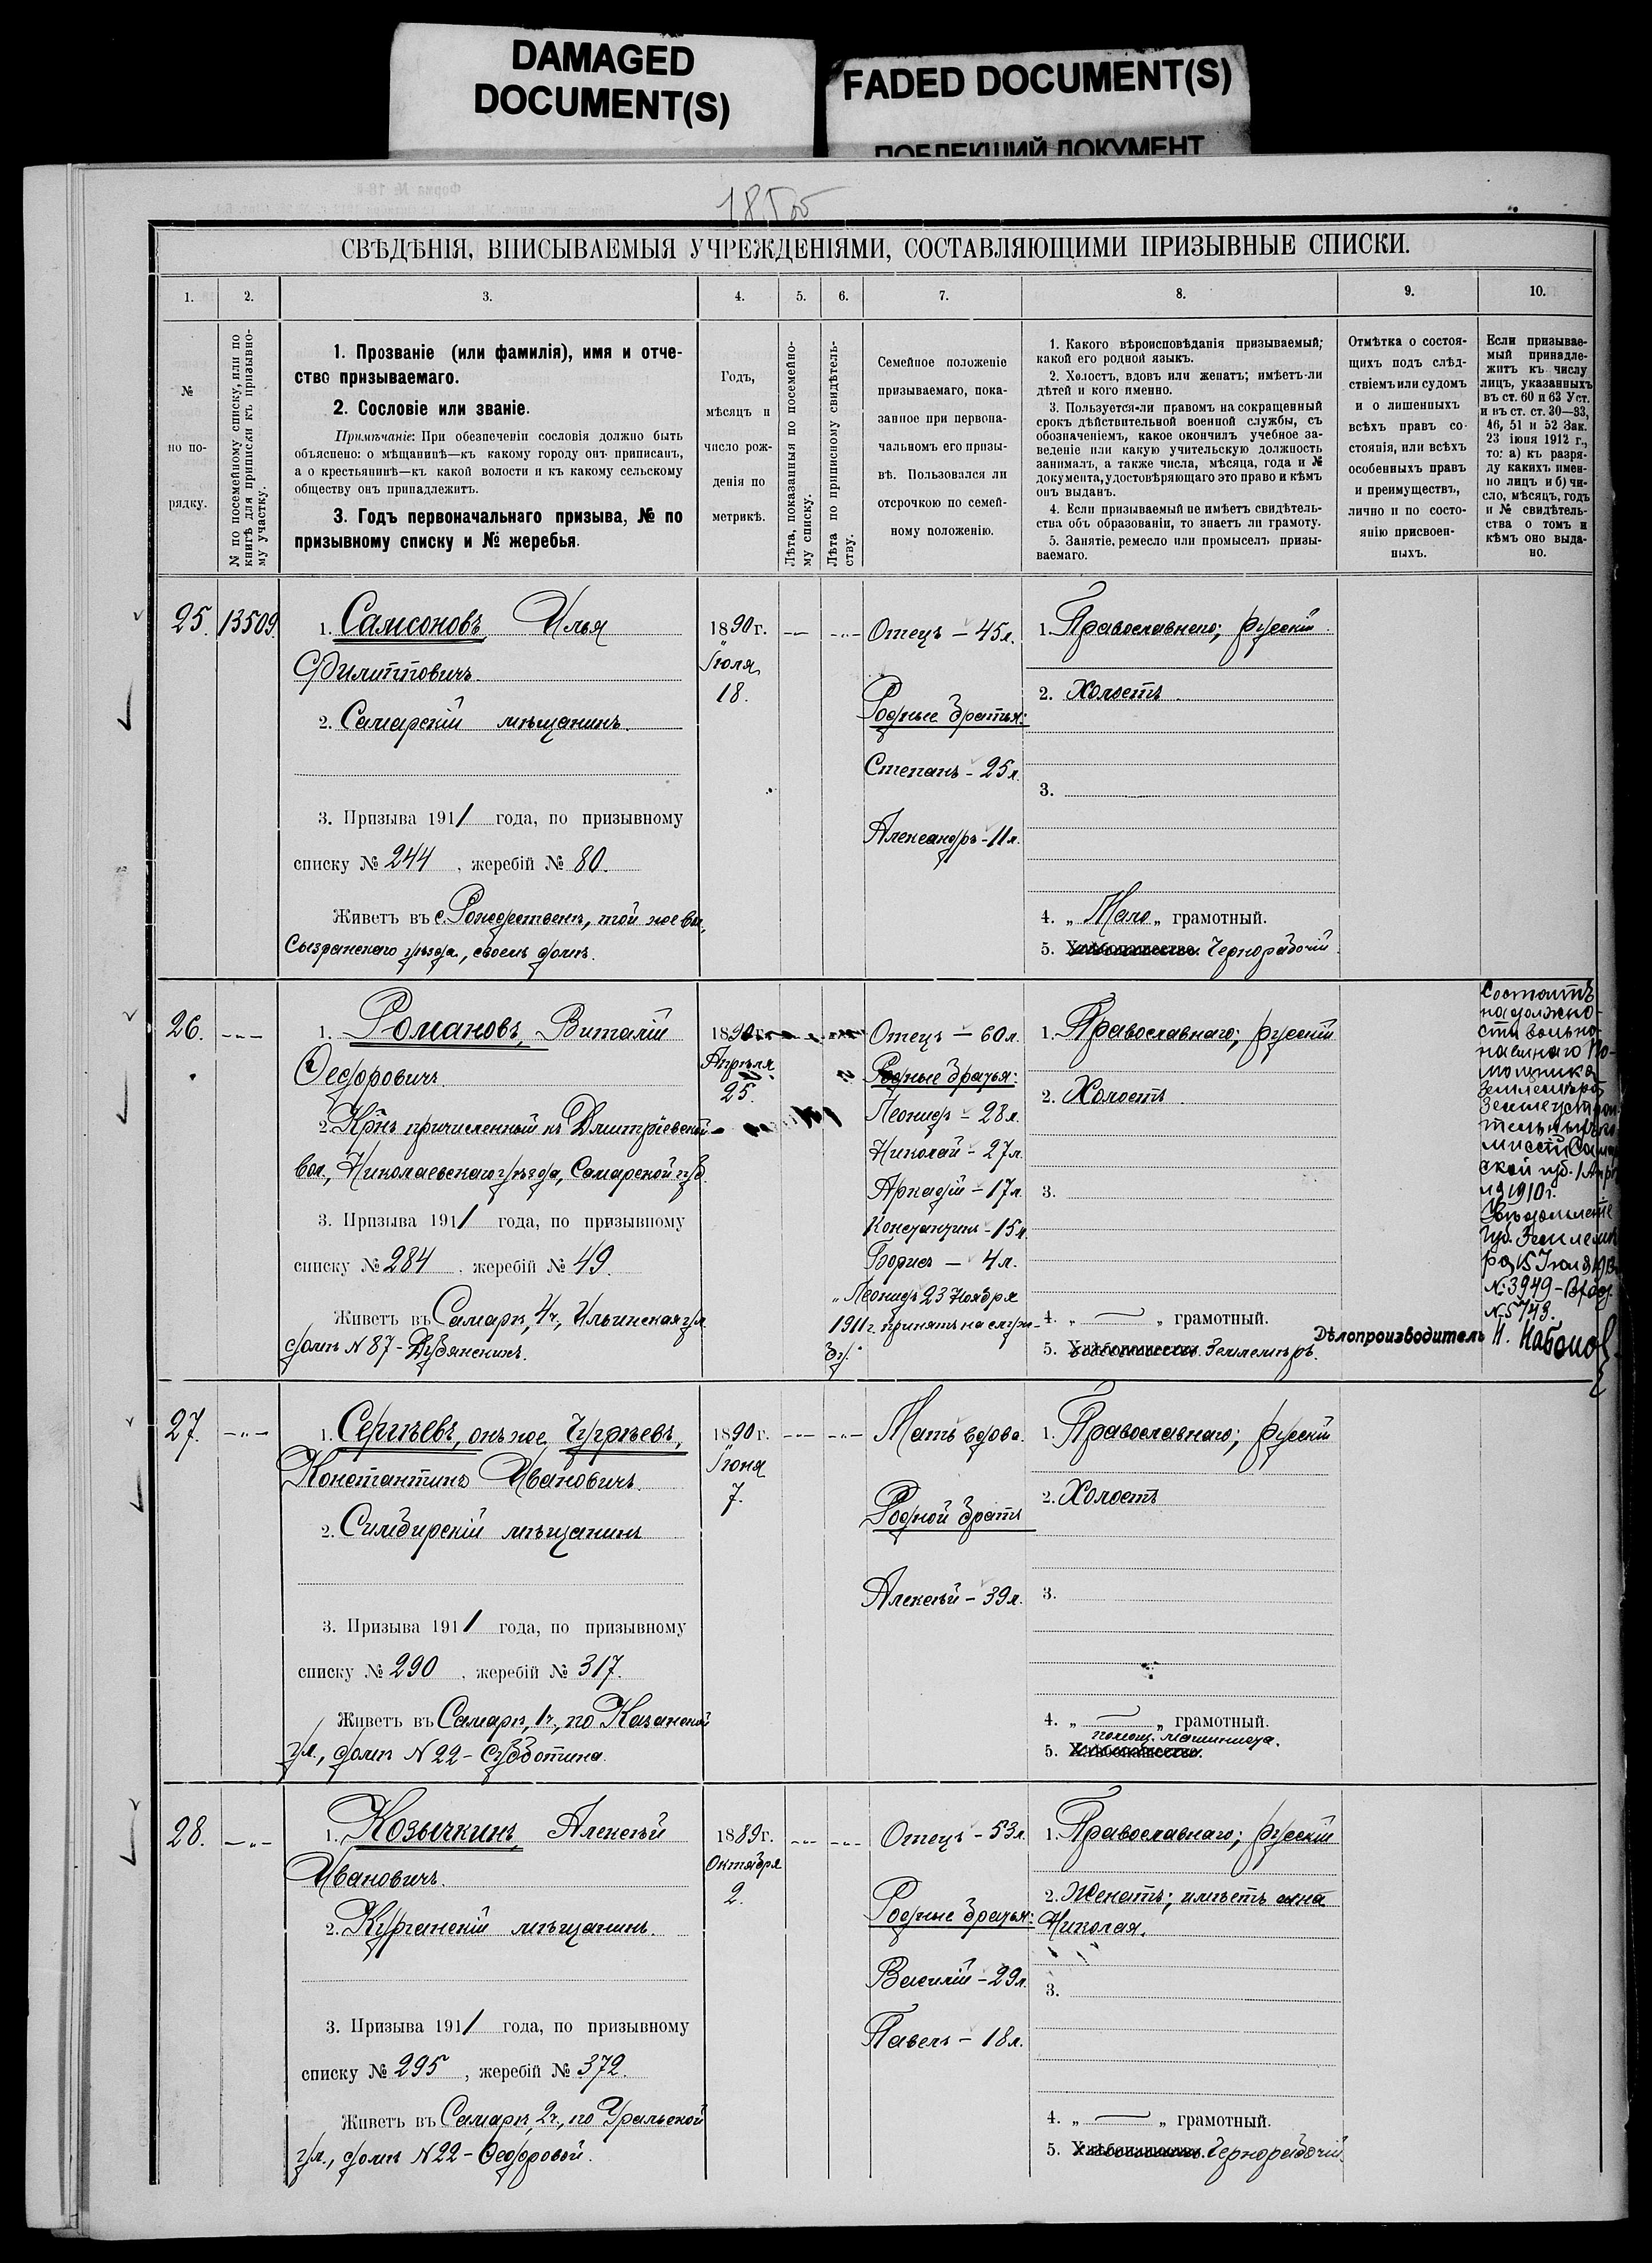 DAMAGED
DOCUMENT(S)
FADED DOCUMENT(S)
ПОБЛЕКШИЙ ДОКУМЕНТ
СВѢДѢНІЯ, ВПИСЫВАЕМЫЯ УЧРЕЖДЕНІЯМИ, СОСТАВЛЯЮЩИМИ ПРИЗЫВНЫЕ СПИСКИ.
1.
№
но по-
рядку.
2.
№ по посемейному списку, или по
книгѣ для приписки къ призывно-
му участку.
3.
1. Прозваніе (или фамилія), имя и отче-
ство призываемаго.
2. Сословіе или званіе.
Примѣчаніе: При обезпеченіи сословія должно быть
объяснено: о мѣщанинѣ—къ какому городу онъ приписанъ,
а о крестьянинѣ—къ какой волости и къ какому сельскому
обществу онъ принадлежитъ.
3. Годъ первоначальнаго призыва, № по
призывному списку и № жеребья.
4.
Годъ,
мѣсяцъ и
число рож-
денія по
метрикѣ.
5.
Лѣта, показанныя по посемейно-
му списку.
6.
Лѣта по приписному свидѣтель-
ству.
7.
Семейное положеніе
призываемаго, пока-
занное при первона-
чальномъ его призы-
вѣ. Пользовался ли
отсрочкою по семей-
ному положенію.
8.
1. Какого вѣроисповѣданія призываемый;
какой его родной языкъ.
2. Холостъ, вдовъ или женатъ; имѣетъ-ли
дѣтей и кого именно.
3. Пользуется-ли правомъ на сокращенный
срокъ дѣйствительной военной службы, съ
обозначеніемъ, какое окончилъ учебное за-
веденіе или какую учительскую должность
занималъ, а также числа, мѣсяца, года и №
документа, удостовѣряющаго это право и кѣмъ
онъ выданъ.
4. Если призываемый не имѣетъ свидѣтель-
ства объ образованіи, то знаетъ ли грамоту.
5. Занятіе, ремесло или промыселъ призы-
ваемаго.
9.
Отмѣтка о состоя-
щихъ подъ слѣд-
ствіемъ или судомъ
и о лишенныхъ
всѣхъ правъ со-
стоянія, или всѣхъ
особенныхъ правъ
и преимуществъ,
лично и по состо-
янію присвоен-
ныхъ.
10.
Если призывае-
мый принадле-
житъ къ числу
лицъ, указанныхъ
въ ст. 60 и 63 Уст.
и въ ст. ст. 30—33,
46, 51 и 52 Зак.
23 іюня 1912 г.,
то: а) къ разря-
ду какихъ имен-
но лицъ и б) чи-
сло, мѣсяцъ, годъ
и № свидѣтель-
ства о томъ и
кѣмъ оно выда-
но.
25. 13509.
1. Самсоновъ Илья
Филипповичъ.
2. Самарскій мѣщанинъ.
3. Призыва 1911 года, по призывному
списку № 244, жеребій № 80.
Живетъ въ с. Рождественѣ, той же вол.,
Сызранскаго уѣзда, своемъ домѣ.
1890 г.
Іюля
18.
Отецъ — 45 л.
Родные братья:
Степанъ - 25 л.
Александръ - 11 л.
1. Православнаго; русскій
2. Холостъ
3.
4. „ Мало „ грамотный.
5. Хлѣбопашество. Чернорабочій.
26.
1. Романовъ, Виталій
Ѳедоровичъ
2. Крнъ причисленный къ Дмитріевской
вол., Николаевскаго уѣзда, Самарской губ.
3. Призыва 1911 года, по призывному
списку № 284, жеребій № 49.
Живетъ въ Самарѣ, 4ч, Ильинская ул.
домъ N 87 -
1890 г.
Апрѣля
25.
Отецъ — 60 л.
Родные братья:
Леонидъ - 28 л.
Николай - 27 л.
Аркадій - 17 л.
Константинъ - 15 л.
Борисъ — 4 л.
„Леонидъ 23 Ноября
1911 г. принятъ на служ-
бу."
1. Православнаго; русскій
2. Холостъ
3.
4. „ — „ грамотный.
5. Хлѣбопашество. Землемѣръ.
Состоитъ
на должно-
сти вольно-
наемнаго По-
мощника
Землемѣра
Землеустрои-
тельныхъ ко-
миссій Самар-
ской губ. 1 Апрѣ-
ля 1910 г.
Увѣдомленіе
Губ. Землемѣ-
ра 15 Іюля
№ 3949
№ 5743.
Дѣлопроизводитель Н.
27.
1. Сергѣевъ, онъ же, Гурьевъ,
Константинъ Ивановичъ
2. Симбирскій мѣщанинъ
3. Призыва 1911 года, по призывному
списку № 290, жеребій № 317.
Живетъ въ Самарѣ, 1ч, по Казанской
ул., домъ N 22 - Субботина.
1890 г.
Іюня
7.
Мать вдова.
Родной братъ
Алексѣй - 39 л.
1. Православнаго; русскій
2. Холостъ
3.
4. „ — „ грамотный.
помощ. машиниста.
5. Хлѣбопашество.
28.
1. Козычкинъ, Алексѣй
Ивановичъ.
2. Курганскій мѣщанинъ.
3. Призыва 1911 года, по призывному
списку № 295, жеребій № 372.
Живетъ въ Самарѣ, 2ч, по Уральской
ул., домъ N 22 - Ѳедоровой.
1889 г.
Октября
2.
Отецъ - 53 л.
Родные братья:
Василій - 29 л.
Павелъ - 18 л.
1. Православнаго; русскій
2. Женатъ; имѣетъ сына
Николая.
3.
4. „ — „ грамотный.
5. Хлѣбопашество. Чернорабочій.